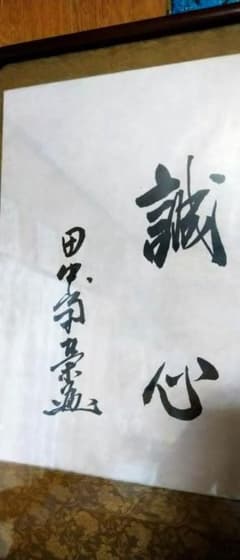 誠心
田中角栄